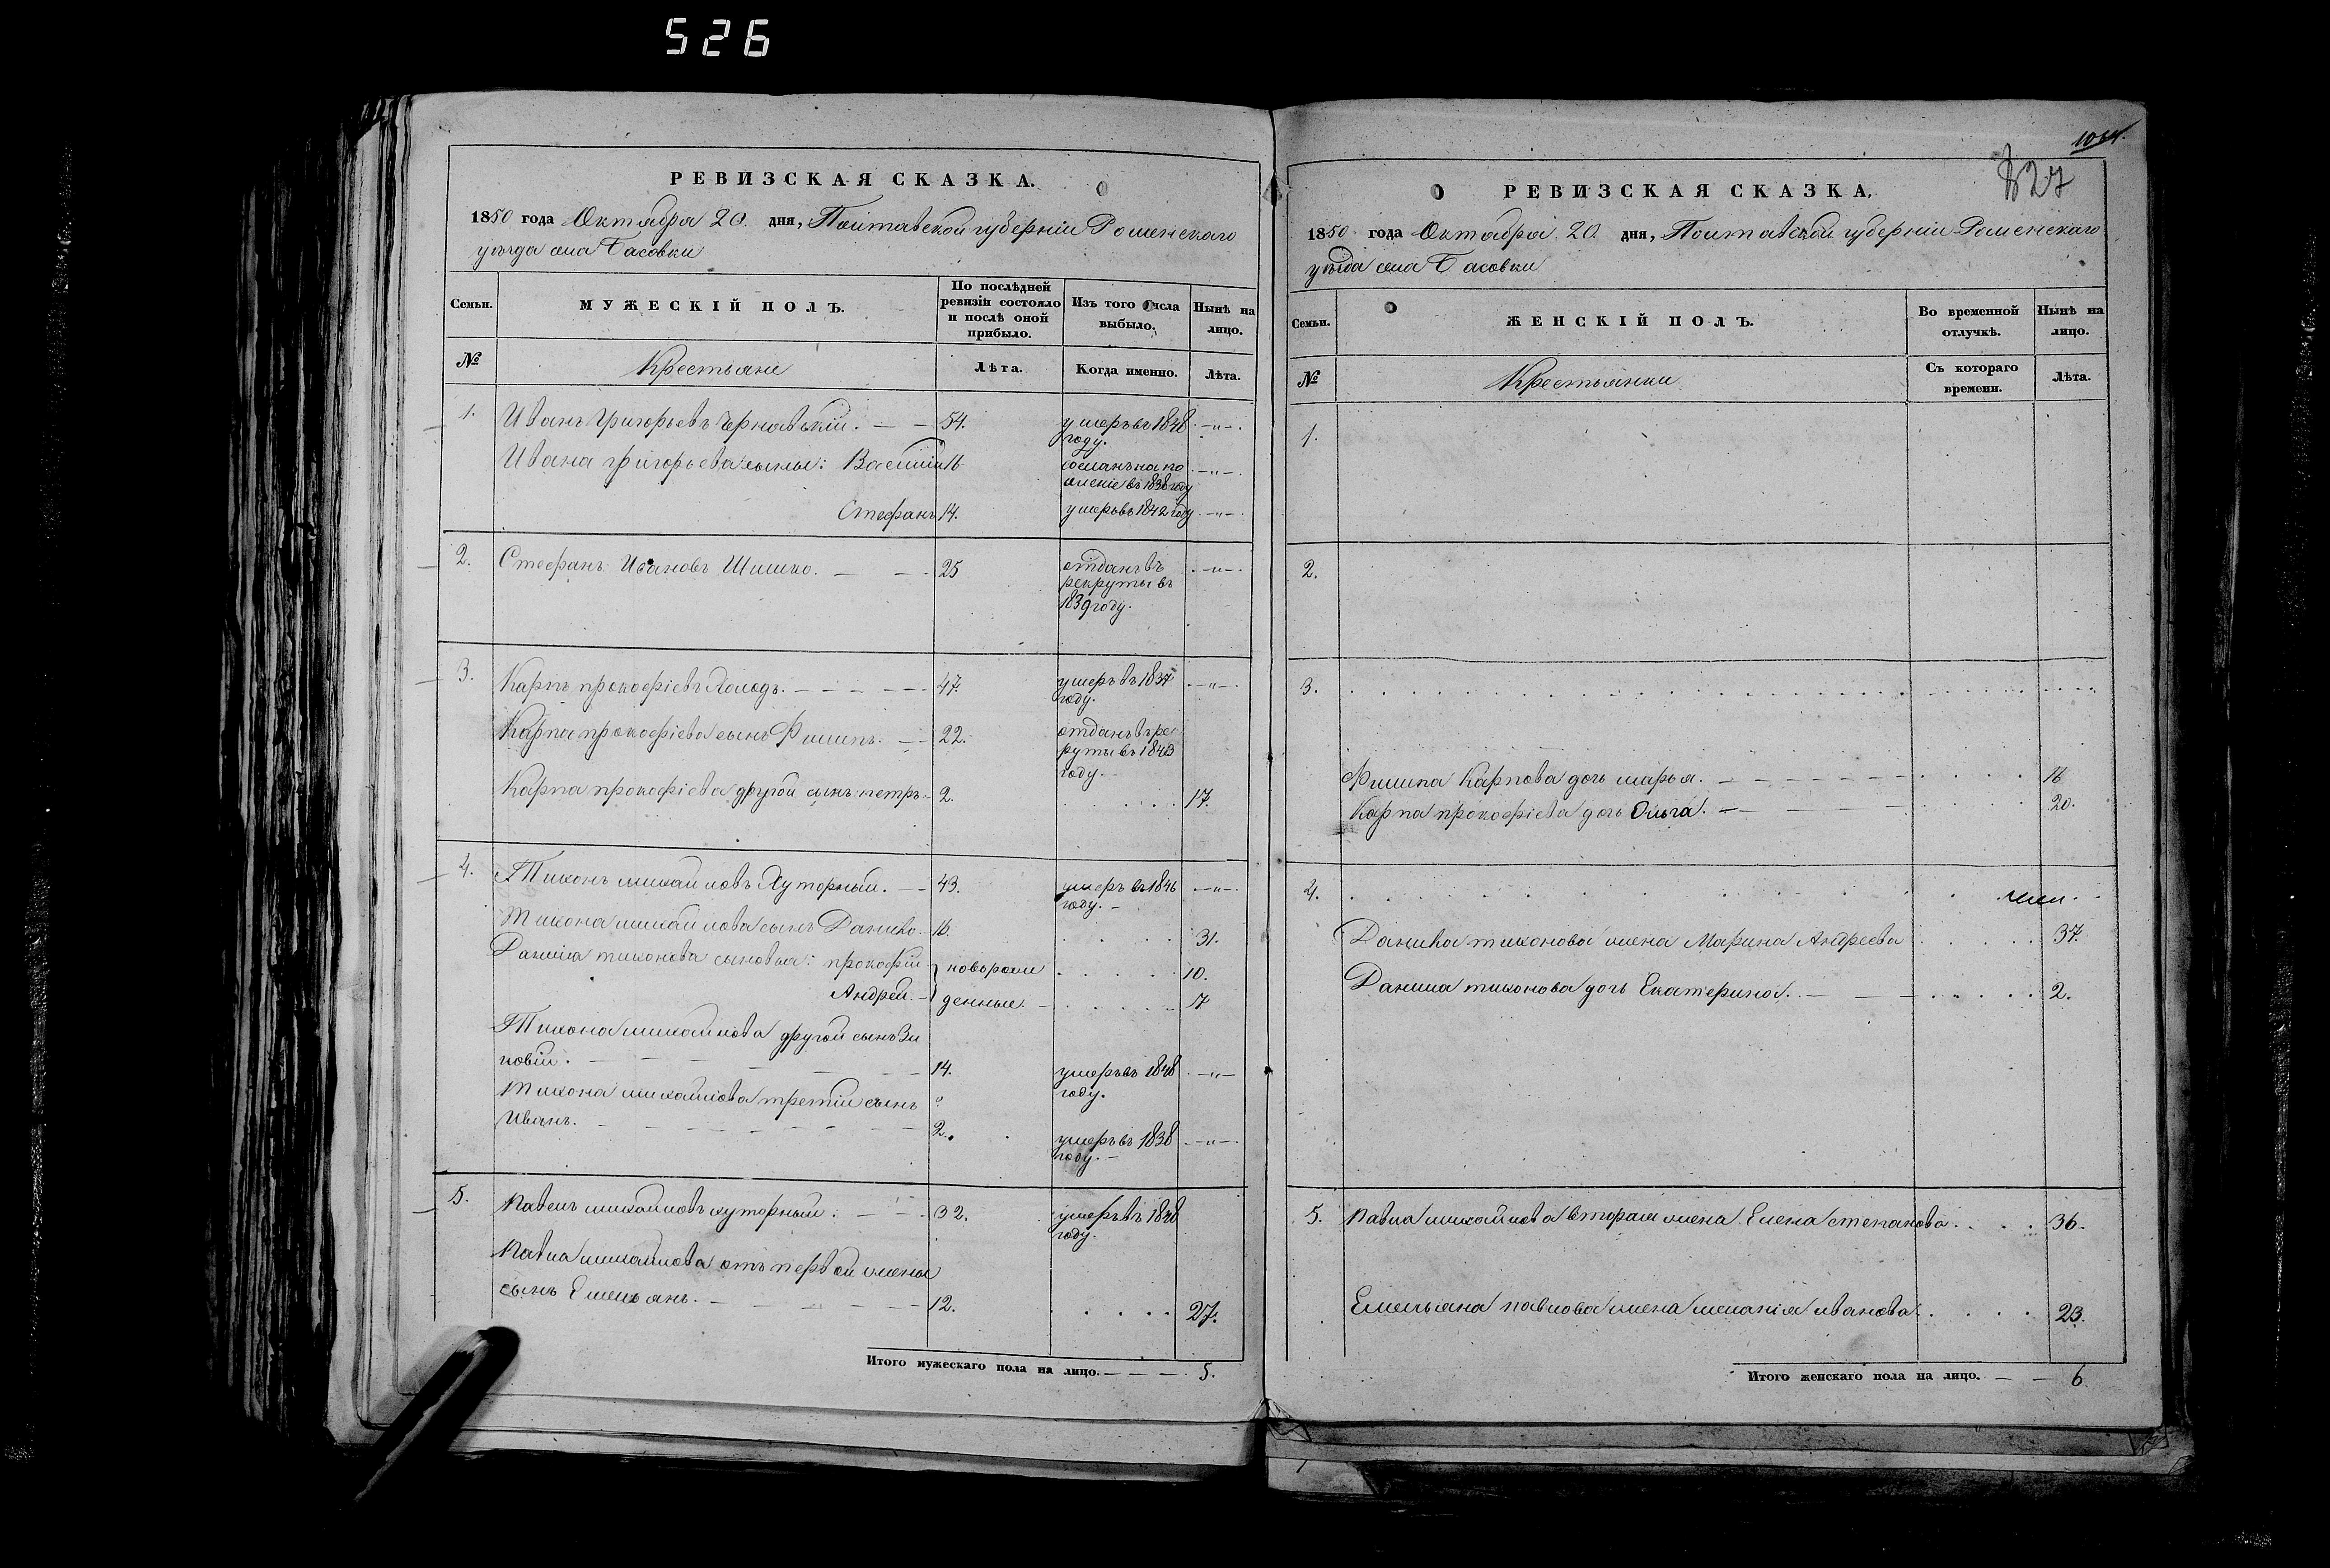 526
РЕВИЗСКАЯ СКАЗКА.
1850 года Октября 20. дня, Полтавской губерніи Роменскаго
уѣзда села Басовки
Семьи.
МУЖЕСКІЙ ПОЛЪ.
По послѣдней ревизіи состояло и послѣ оной прибыло.
Изъ того числа выбыло.
Нынѣ на лицо.
№
Крестьяне
Лѣта.
Когда именно.
Лѣта.
1. Иванъ Григорьевъ Чернавскій. — — 54. умеръ въ 1848 году. —„—
Ивана Григорьева сыны: Василій 16 сосланъ на поселеніе въ 1838 году —„—
Стефанъ 14. умеръ въ 1842 году —„—
2. Стефанъ Ивановъ Шишко. — — 25 отданъ въ рекруты въ 1839 году. —„—
3. Карпъ прокофіевъ Холодъ. — — — 47. умеръ въ 1837 году. —„—
Карпа прокофіева сынъ Филипъ. — 22. отданъ въ рекруты въ 1843 году. —
Карпа прокофіева другой сынъ петръ. 2. . . . . 17.
4. Тихонъ михайловъ Хуторный. — — 43. умеръ въ 1846 году. — —„—
Тихона михайлова сынъ Данило. 16. . . . . 31.
Данила тихонова сыновья: прокофій } новорож . . . . 10.
Андрей. — } денные. — . . . . 7
Тихона михайлова другой сынъ Зи
новій. — — — — 14. умеръ въ 1848 году. —„—
Тихона михайлова третій сынъ
Иванъ. — — — — 2. умеръ въ 1838 году. — —„—
5. Павелъ михайловъ хуторный. — — 32. умеръ въ 1848 году.
Павла михайлова отъ первой жены
сынъ Емельянъ. — — — 12. . . . . 27.
Итого мужескаго пола на лицо. — — — 5.
827
РЕВИЗСКАЯ СКАЗКА.
1850 года Октября 20. дня, Полтавской губерніи Роменскаго
уѣзда села Басовки
Семьи.
ЖЕНСКІЙ ПОЛЪ.
Во временной отлучкѣ.
Нынѣ на лицо.
№
Крестьянки
Съ котораго времени.
Лѣта.
1.
2.
3.
Филипа Карпова дочь марья. — — — 16
Карпа прокофіева дочь Ольга. — — 20.
4.
Данила тихонова жена Марина Андреева . . . . 37.
Данила тихонова дочь Екатерина. — — . . . . 2.
5. Павла михайлова вторая жена Елена степанова . . . . 36.
Емельяна павлова жена меланія иванова . . . . 23.
Итого женскаго пола на лицо. — — 6